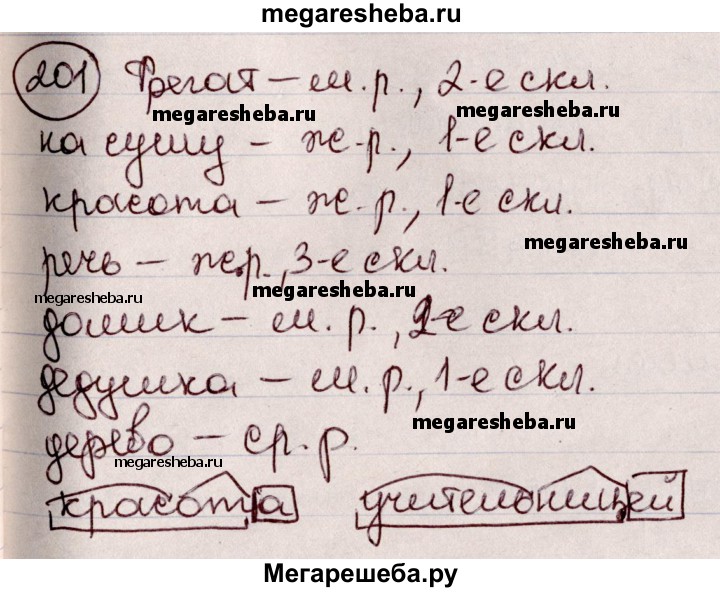 megaresheba.ru
201 Фрегат – м.р., 2-е скл.
megaresheba.ru
megaresheba.ru
на сушу – ж.р., 1-е скл.
красота – ж.р., 1-е скл.
megaresheba.ru
речь – ж.р., 3-е скл.
megaresheba.ru
megaresheba.ru
домик – м.р., 2-е скл.
дедушка – м.р., 1-е скл.
megaresheba.ru
дерево – ср.р.
megaresheba.ru
красота учительницей
Мегарешеба.ру